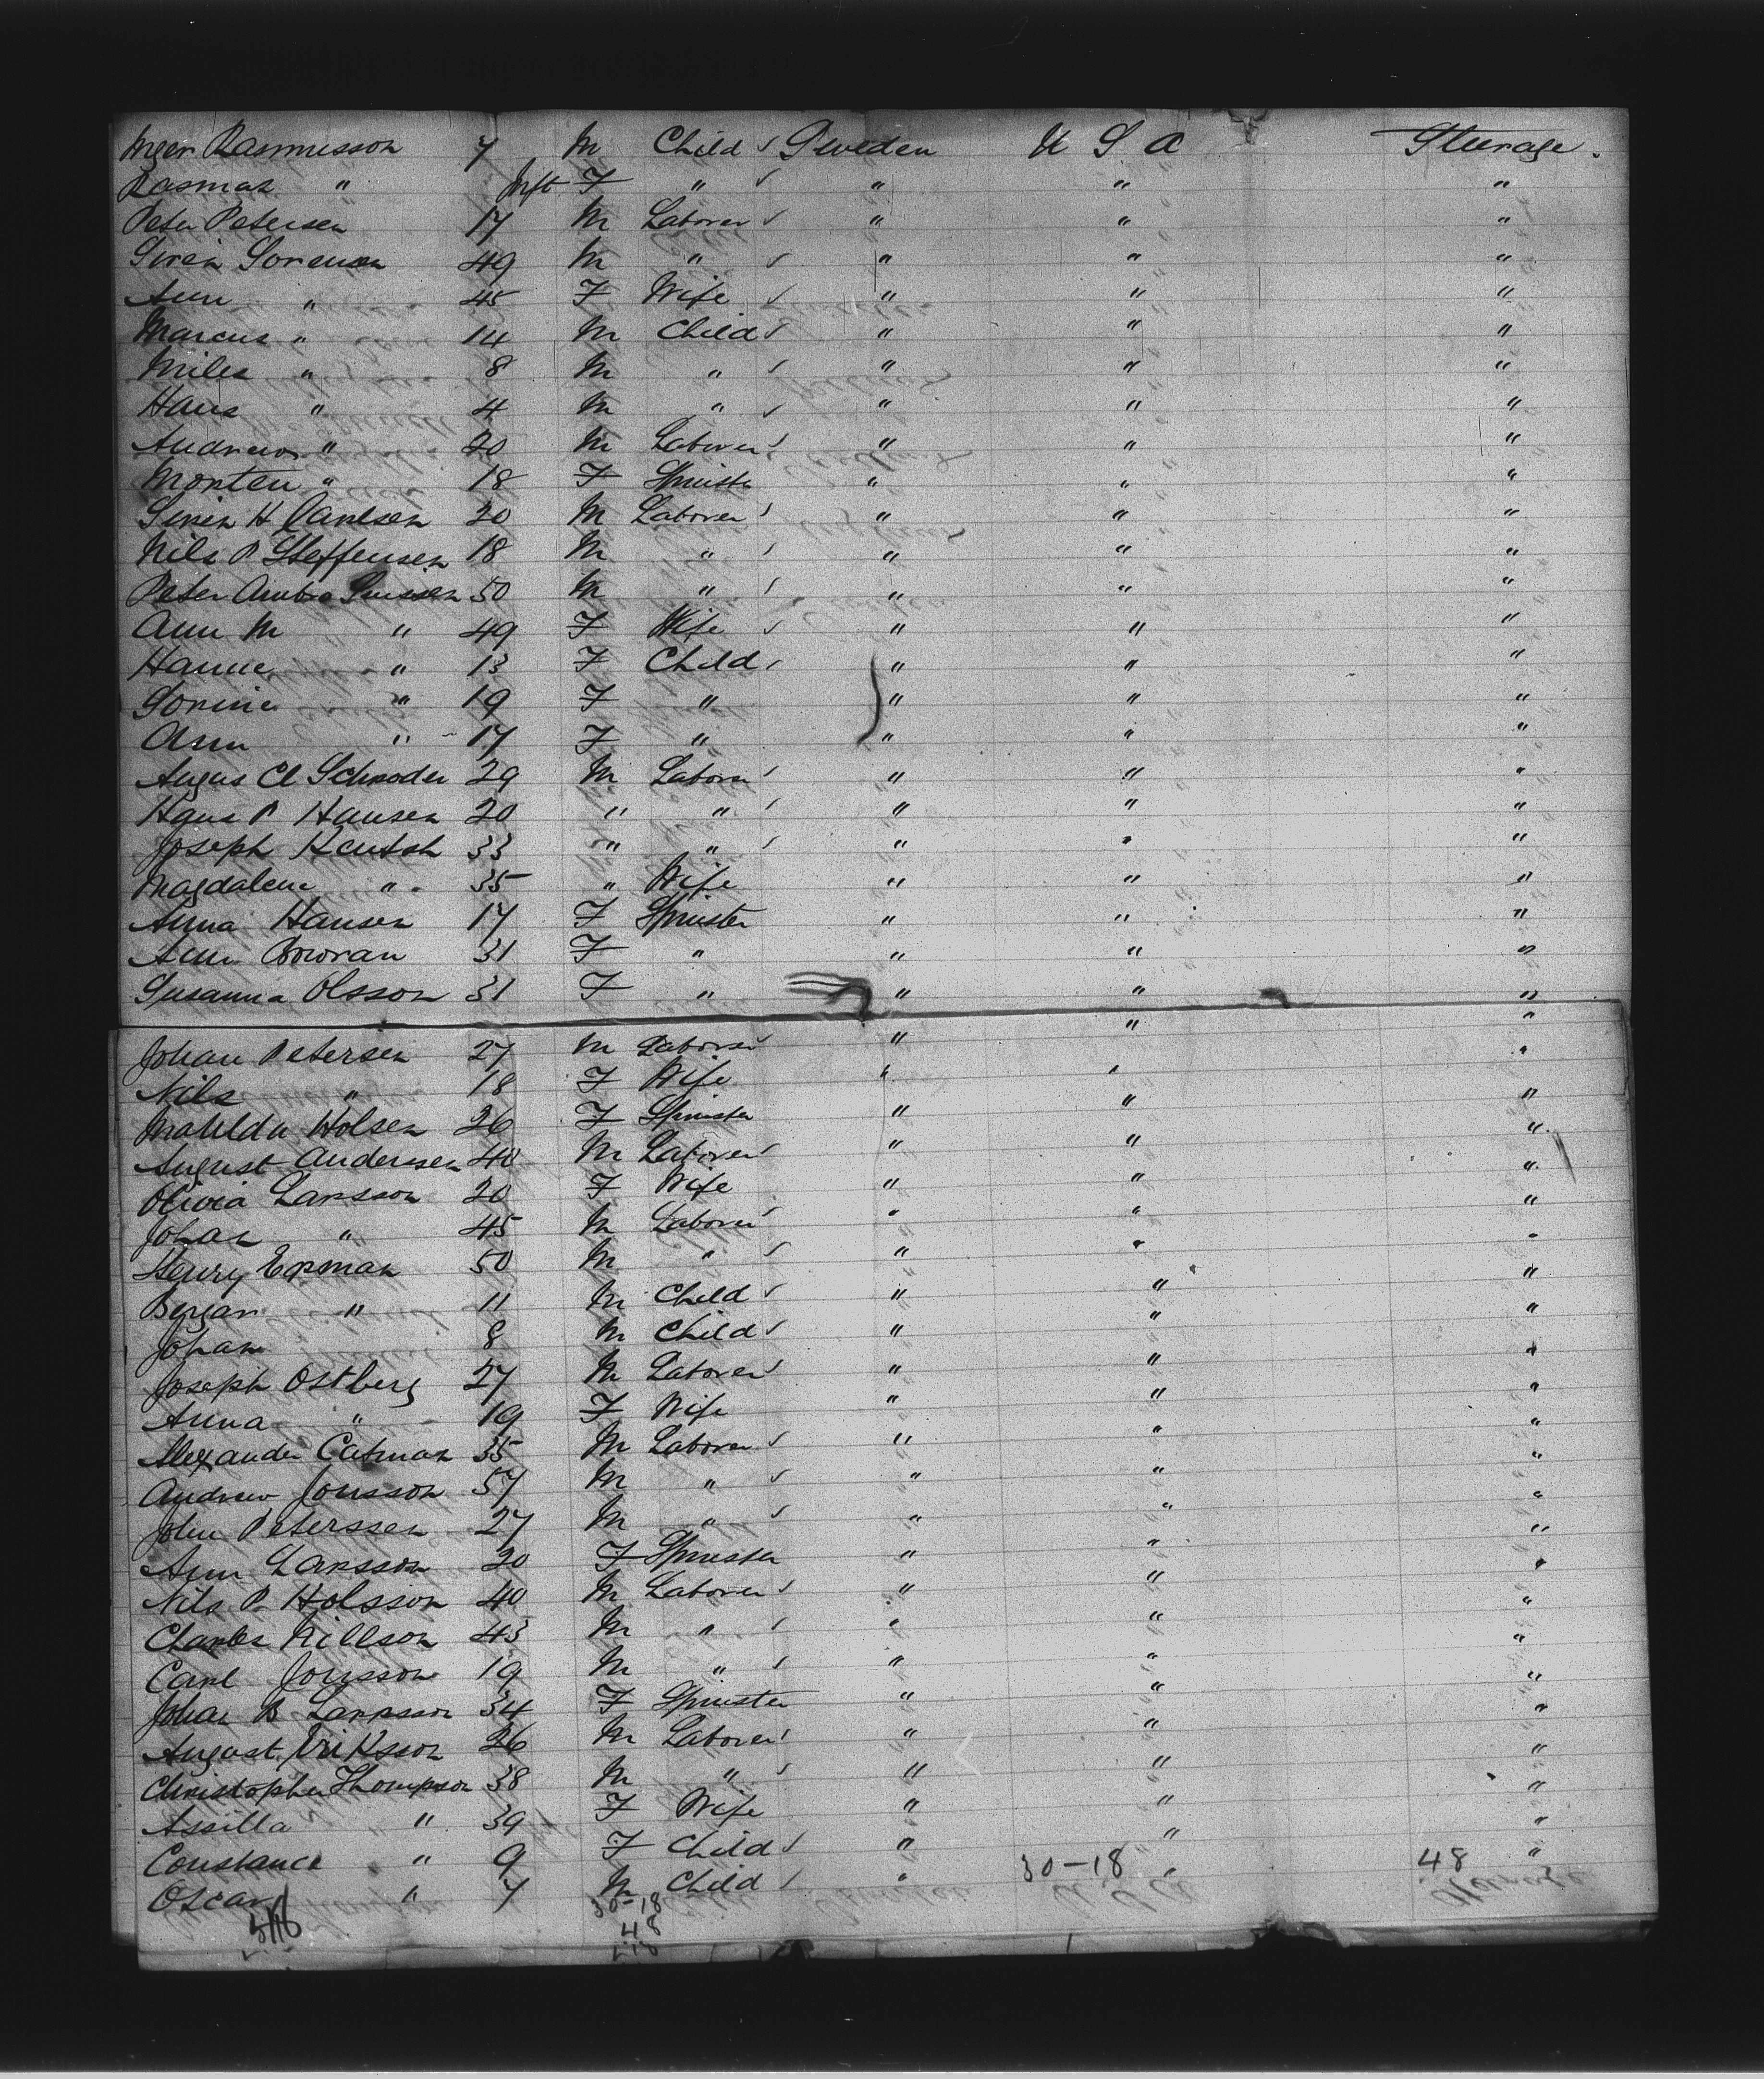 Inger Rasmusson 7 M Child ✓ Sweden U S A Steerage.
Rasmas " Inft F " ✓ " " "
Peter Petersen 17 M Laborer ✓ " " "
Siren Sorensen 49 M " ✓ " " "
Ann " 45 F Wife ✓ " " "
Marcus " 14 M Child ✓ " " "
Miles " 8 M " ✓ " " "
Hans " 4 M " ✓ " " "
Andrew " 20 M Laborer ✓ " " "
Morten " 18 F Spinster " " "
Siren H Carlsen 20 M Laborer ✓ " " "
Nils P Steffensen 18 M " ✓ " " "
Peter 50 M " ✓ " " "
Ann M " 49 F Wife ✓ " " "
Hanne " 13 F Child ✓ " " "
Sorine " 19 F " " " "
Ann " 17 F " " " "
Augus Cl Schroder 29 M Laborer ✓ " " "
Hans P Hansen 20 " " ✓ " " "
Joseph 33 " " ✓ " " "
Magdalene " 35 " Wife " " "
Anna Hansen 17 F Spinster " " "
Ann 31 F " " " "
Susanna Olsson 31 F " " " "
Johan Petersen 27 M Laborer ✓ " " "
Nils " 18 F Wife " " "
Matilda Holsen 26 F Spinster " " "
August Andersen 40 M Laborer ✓ " " "
Olivia Larsson 20 F Wife " " "
Johan " 45 M Laborer ✓ " " "
Henry Exsman 50 M " ✓ " " "
Bergar " 11 M Child ✓ " " "
Johan 8 M Child ✓ " " "
Joseph Ostberg 27 M Laborer ✓ " " "
Anna " 19 F Wife " " "
Alexander Catman 35 M Laborer ✓ " " "
Andrew Jonsson 57 M " ✓ " " "
John Peterssen 27 M " ✓ " " "
Ann Larsson 20 F Spinster " " "
Nils P. Holsson 40 M Laborer ✓ " " "
Charles Nillson 43 M " ✓ " " "
Carl Jonsson 19 M " ✓ " " "
Johan B Larsson 34 F Spinster " " "
August Eriksson 26 M Laborer ✓ " " "
Christopher Thompson 38 M " ✓ " " "
Assilla " 39 F Wife " " "
Constance " 9 F Child ✓ " " "
Oscar " 7 M Child ✓ " 30-18 " 48 "
30-18
48